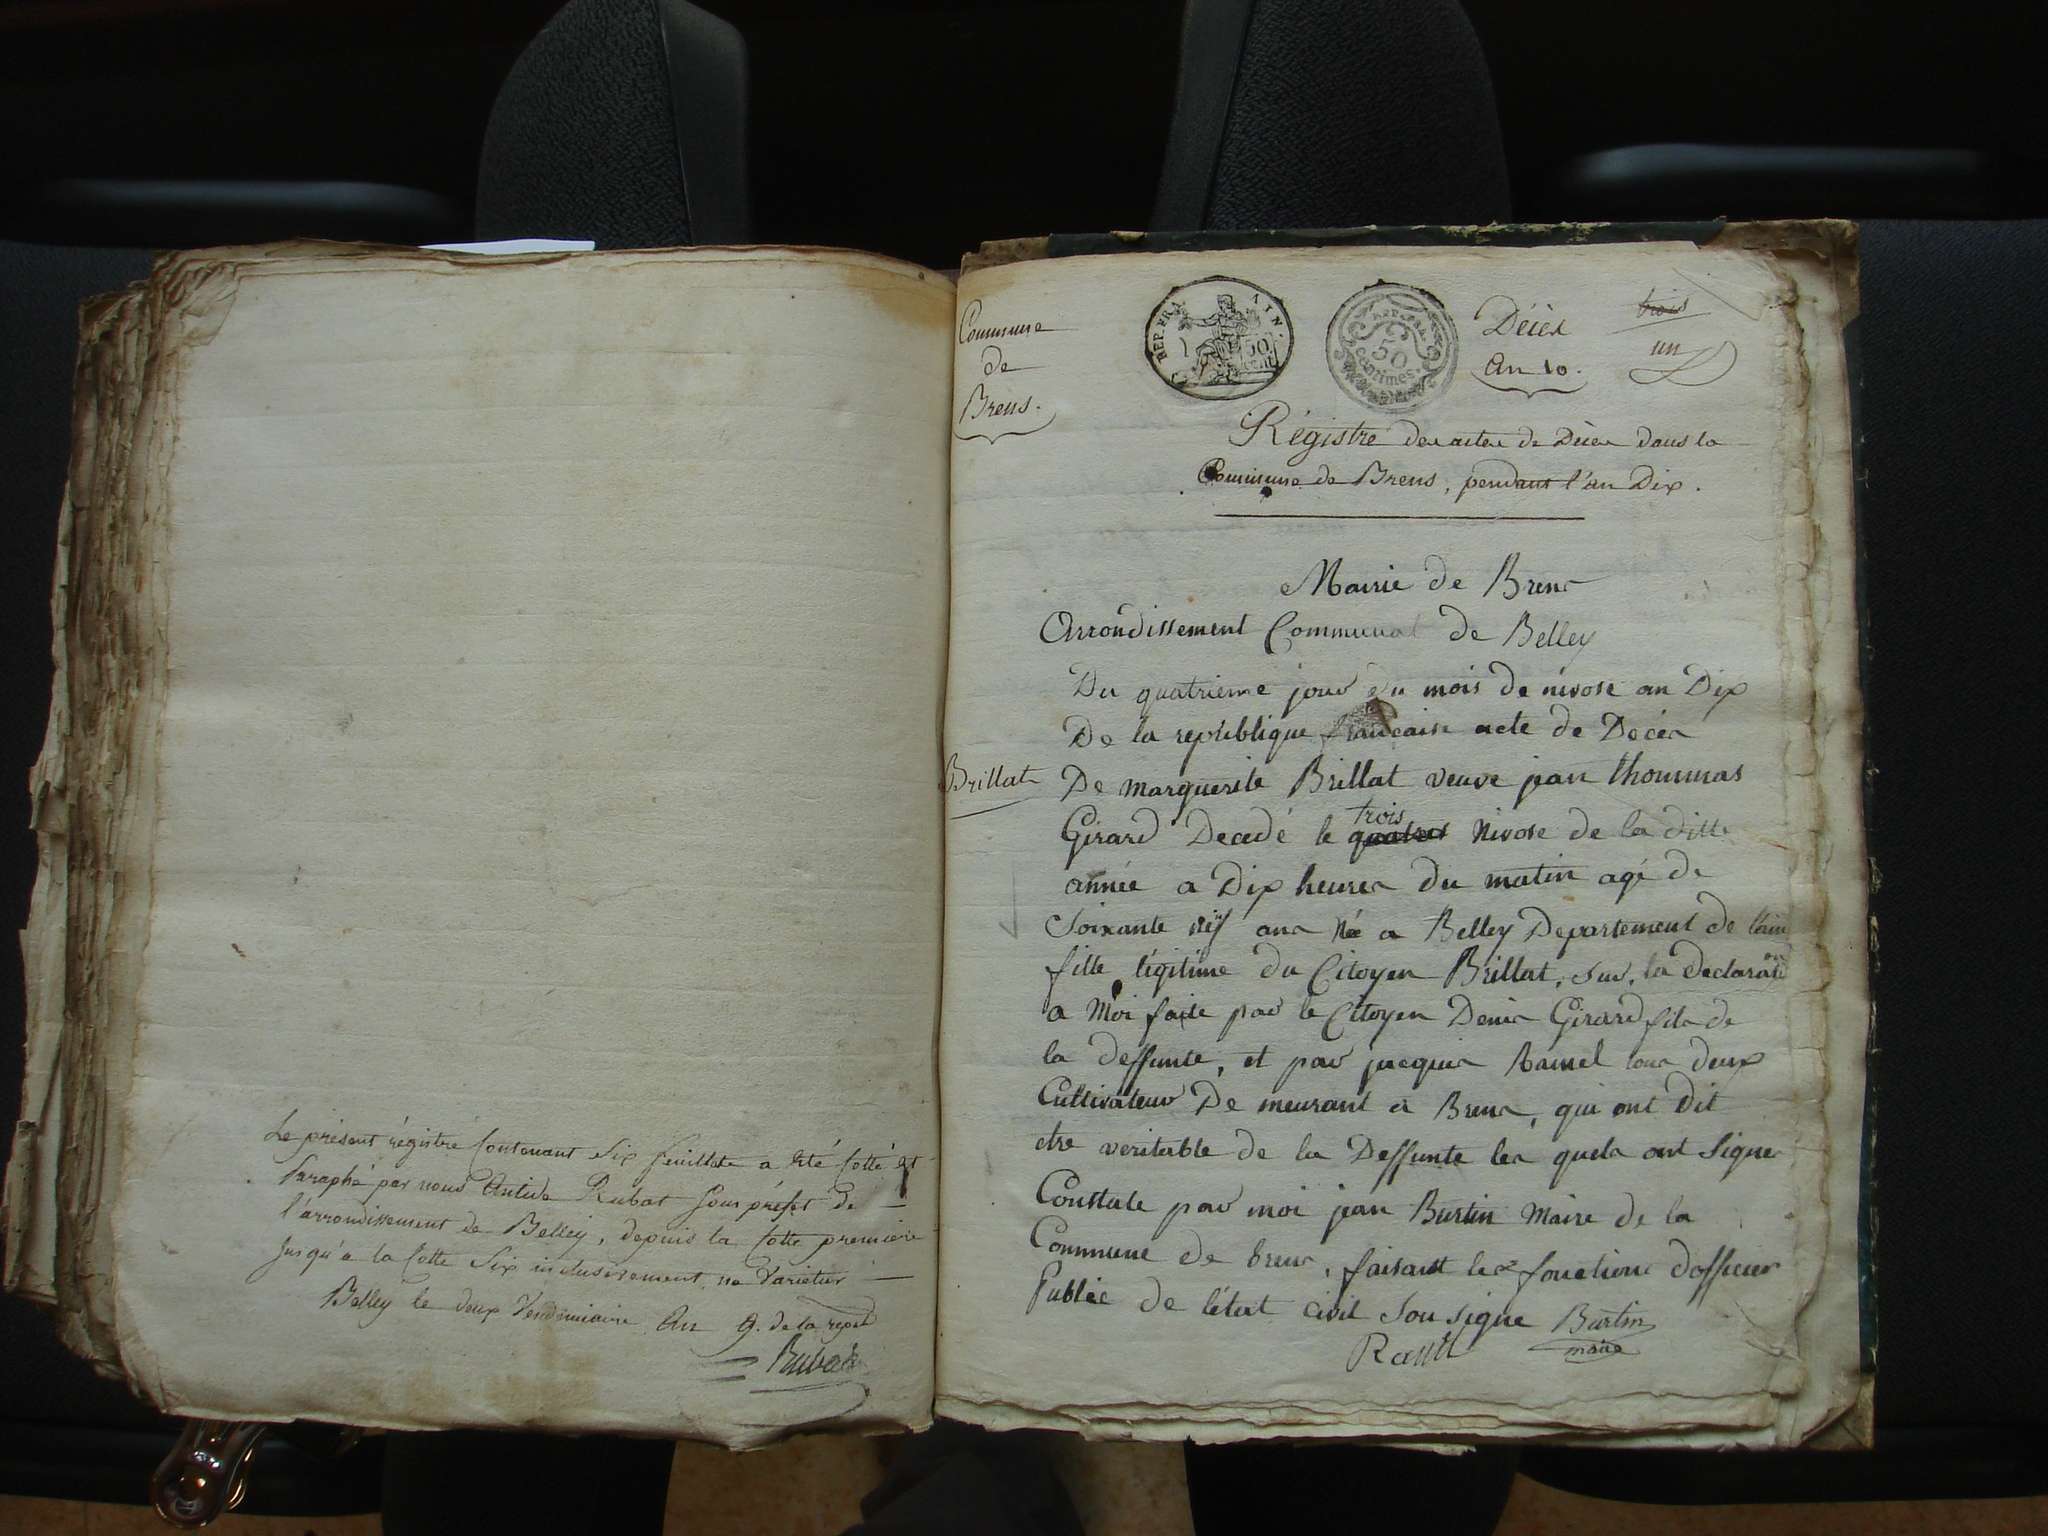 Le présent régistre Contenant Six feuillets a été Cotté et
Paraphé par nous Antide Rubat Sous préfet de
l'arrondissement de Belley, depuis la Cotte première
Jusqu'a la Cotte Six inclusivement ne Varietur
Belley le deux Vendémiaire An 9. de la répub
Rubat
Commune
de
Brens.
REP. FRA. AIN.
50 CENT
REP. FRA.
50
centimes.
Décès
An 10.
trois
un
Régistre des actes de Décès dans la
Commune de Brens, pendant l'an Dix.
Mairie de Brens
Arrondissement Communal de Belley
Du quatrieme jour du mois de nivose an Dix
De la republique francaise acte de Decés
Brillat
De marguerite Brillat veuve jean thommas
trois
Girard Decedé le quatres Nivose de la ditte
année a Dix heures du matin agé de
Soixante ans Née a Belley Departement de l'ain
fille légitime du Citoyen Brillat, sur la declaration
a Moi faite par le Citoyen Denis Girard fils de
la deffunte, et par jacques Ramel tous deux
Cultivateur De meurant a Brens, qui ont dit
etre veritable de la Deffunte les quels ont Signer
Constate par moi jean Burtin Maire de la
Commune de brens, faisant les fonctions dofficier
Public de létat civil Sousigne Burtin
maire